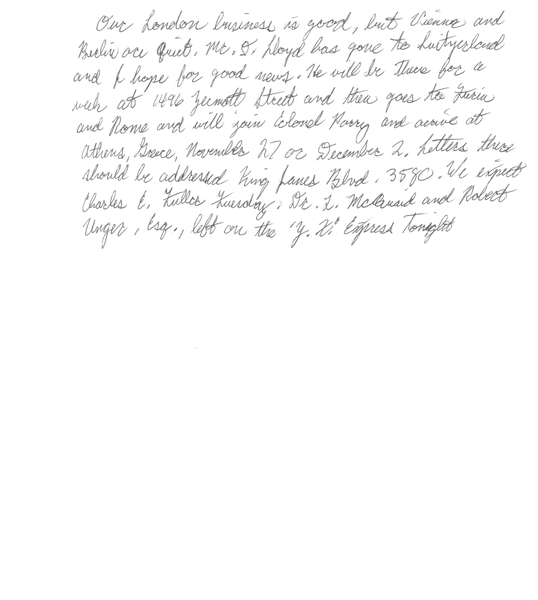 Our London business is good, but Vienna and
Berlin are quiet. Mr. D. Lloyd has gone to Switzerland
and I hope for good news. He will be there for a
week at 1496 Zermott Street and then goes to Turin
and Rome and will join Colonel Parry and arrive at
Athens, Greece, November 27 or December 2. Letters there
should be addressed King James Blvd. 3580. We expect
Charles E. Fuller Tuesday. Dr. L. McQuaid and Robert
Unger, Esq., left on the 'Y. X.' Express Tonight